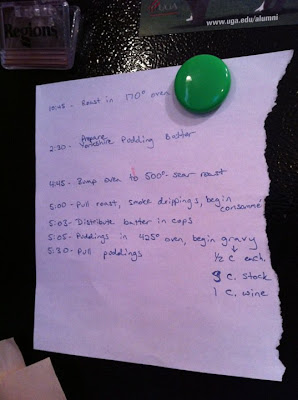 Regions
UGA
www.uga.edu/alumni
10:45 - Roast in 170° oven
Prepare
2:30 - Yorkshire Pudding Batter
4:45 - Bump oven to 500° - sear roast
5:00 - Pull roast, smoke drippings, begin
consommé
5:03 - Distribute batter in cups
5:05 - Puddings in 425° oven, begin gravy
5:30 - Pull puddings
1/2 c each.
3 c. stock
1 c. wine